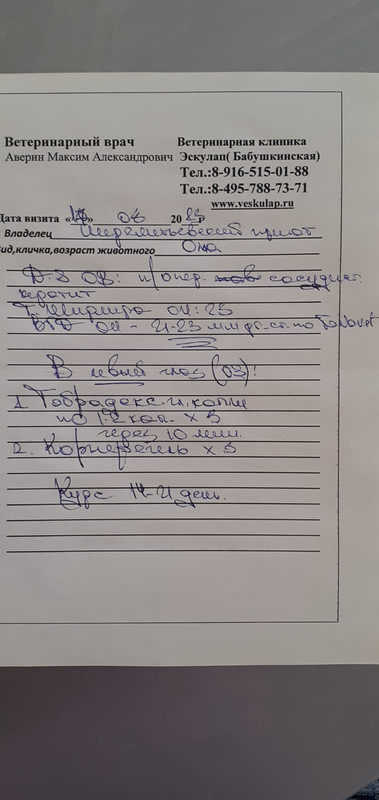 Ветеринарный врач Ветеринарная клиника
Аверин Максим Александрович Эскулап( Бабушкинская)
Тел.:8-916-515-01-88
Тел.:8-495-788-73-71
www.veskulap.ru
Дата визита « » 20 г
Владелец приют
Вид,кличка,возраст животного Она
D-S п/опер. сосудист.
кератит
Т. Ширмера ОИ: 23
ВГД ОИ - 21-23 мм рт. ст. по
В левый глаз (OS)!
1. Тобрадекс гл. капли
по 1-2 кап. х 3
через 10 мин.
2. Корнерегель х 3
Курс 14-21 день.